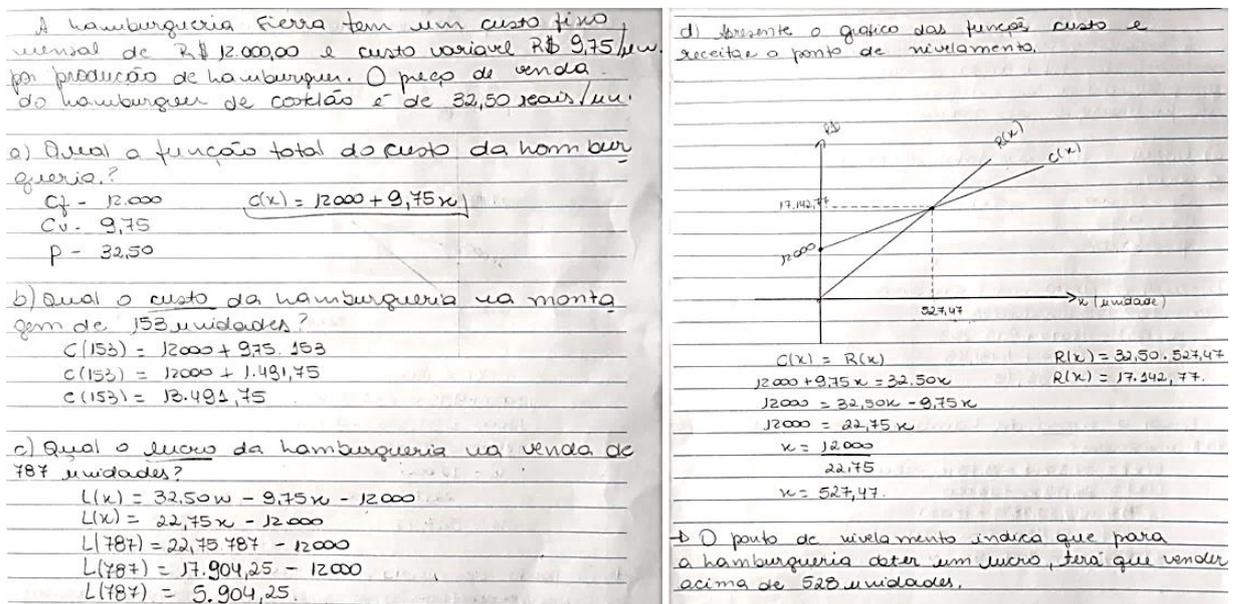 A hamburgueria Fierra tem um custo fixo
mensal de R$ 12.000,00 e custo variavel R$ 9,75/un.
por produção de hamburguer. O preço de venda
do hamburguer de costelão é de 32,50 reais/un.
a) Qual a função total do custo da hambur
gueria.?
Cf - 12.000
C(x) = 12000 + 9,75x
Cv - 9,75
P - 32,50
b) Qual o custo da hamburgueria na monta
gem de 153 unidades?
C(153) = 12000 + 9,75. 153
C(153) = 12000 + 1.491,75
C(153) = 13.491,75
c) Qual o lucro da hamburgueria na venda de
787 unidades?
L(x) = 32,50x - 9,75x - 12000
L(x) = 22,75x - 12000
L(787) = 22,75.787 - 12000
L(787) = 17.904,25 - 12000
L(787) = 5.904,25.
d) Apresente o gráfico das funções custo e
receita e o ponto de nivelamento.
R$
R(x)
C(x)
17.142,77
12000
527,47
x (unidade)
C(x) = R(x)
12000 + 9,75x = 32,50x
12000 = 32,50x - 9,75x
12000 = 22,75x
x = 12000
22,75
x = 527,47.
R(x) = 32,50.527,47
R(x) = 17.142,77.
O ponto de nivelamento indica que para
a hamburgueria obter um lucro, terá que vender
acima de 528 unidades.